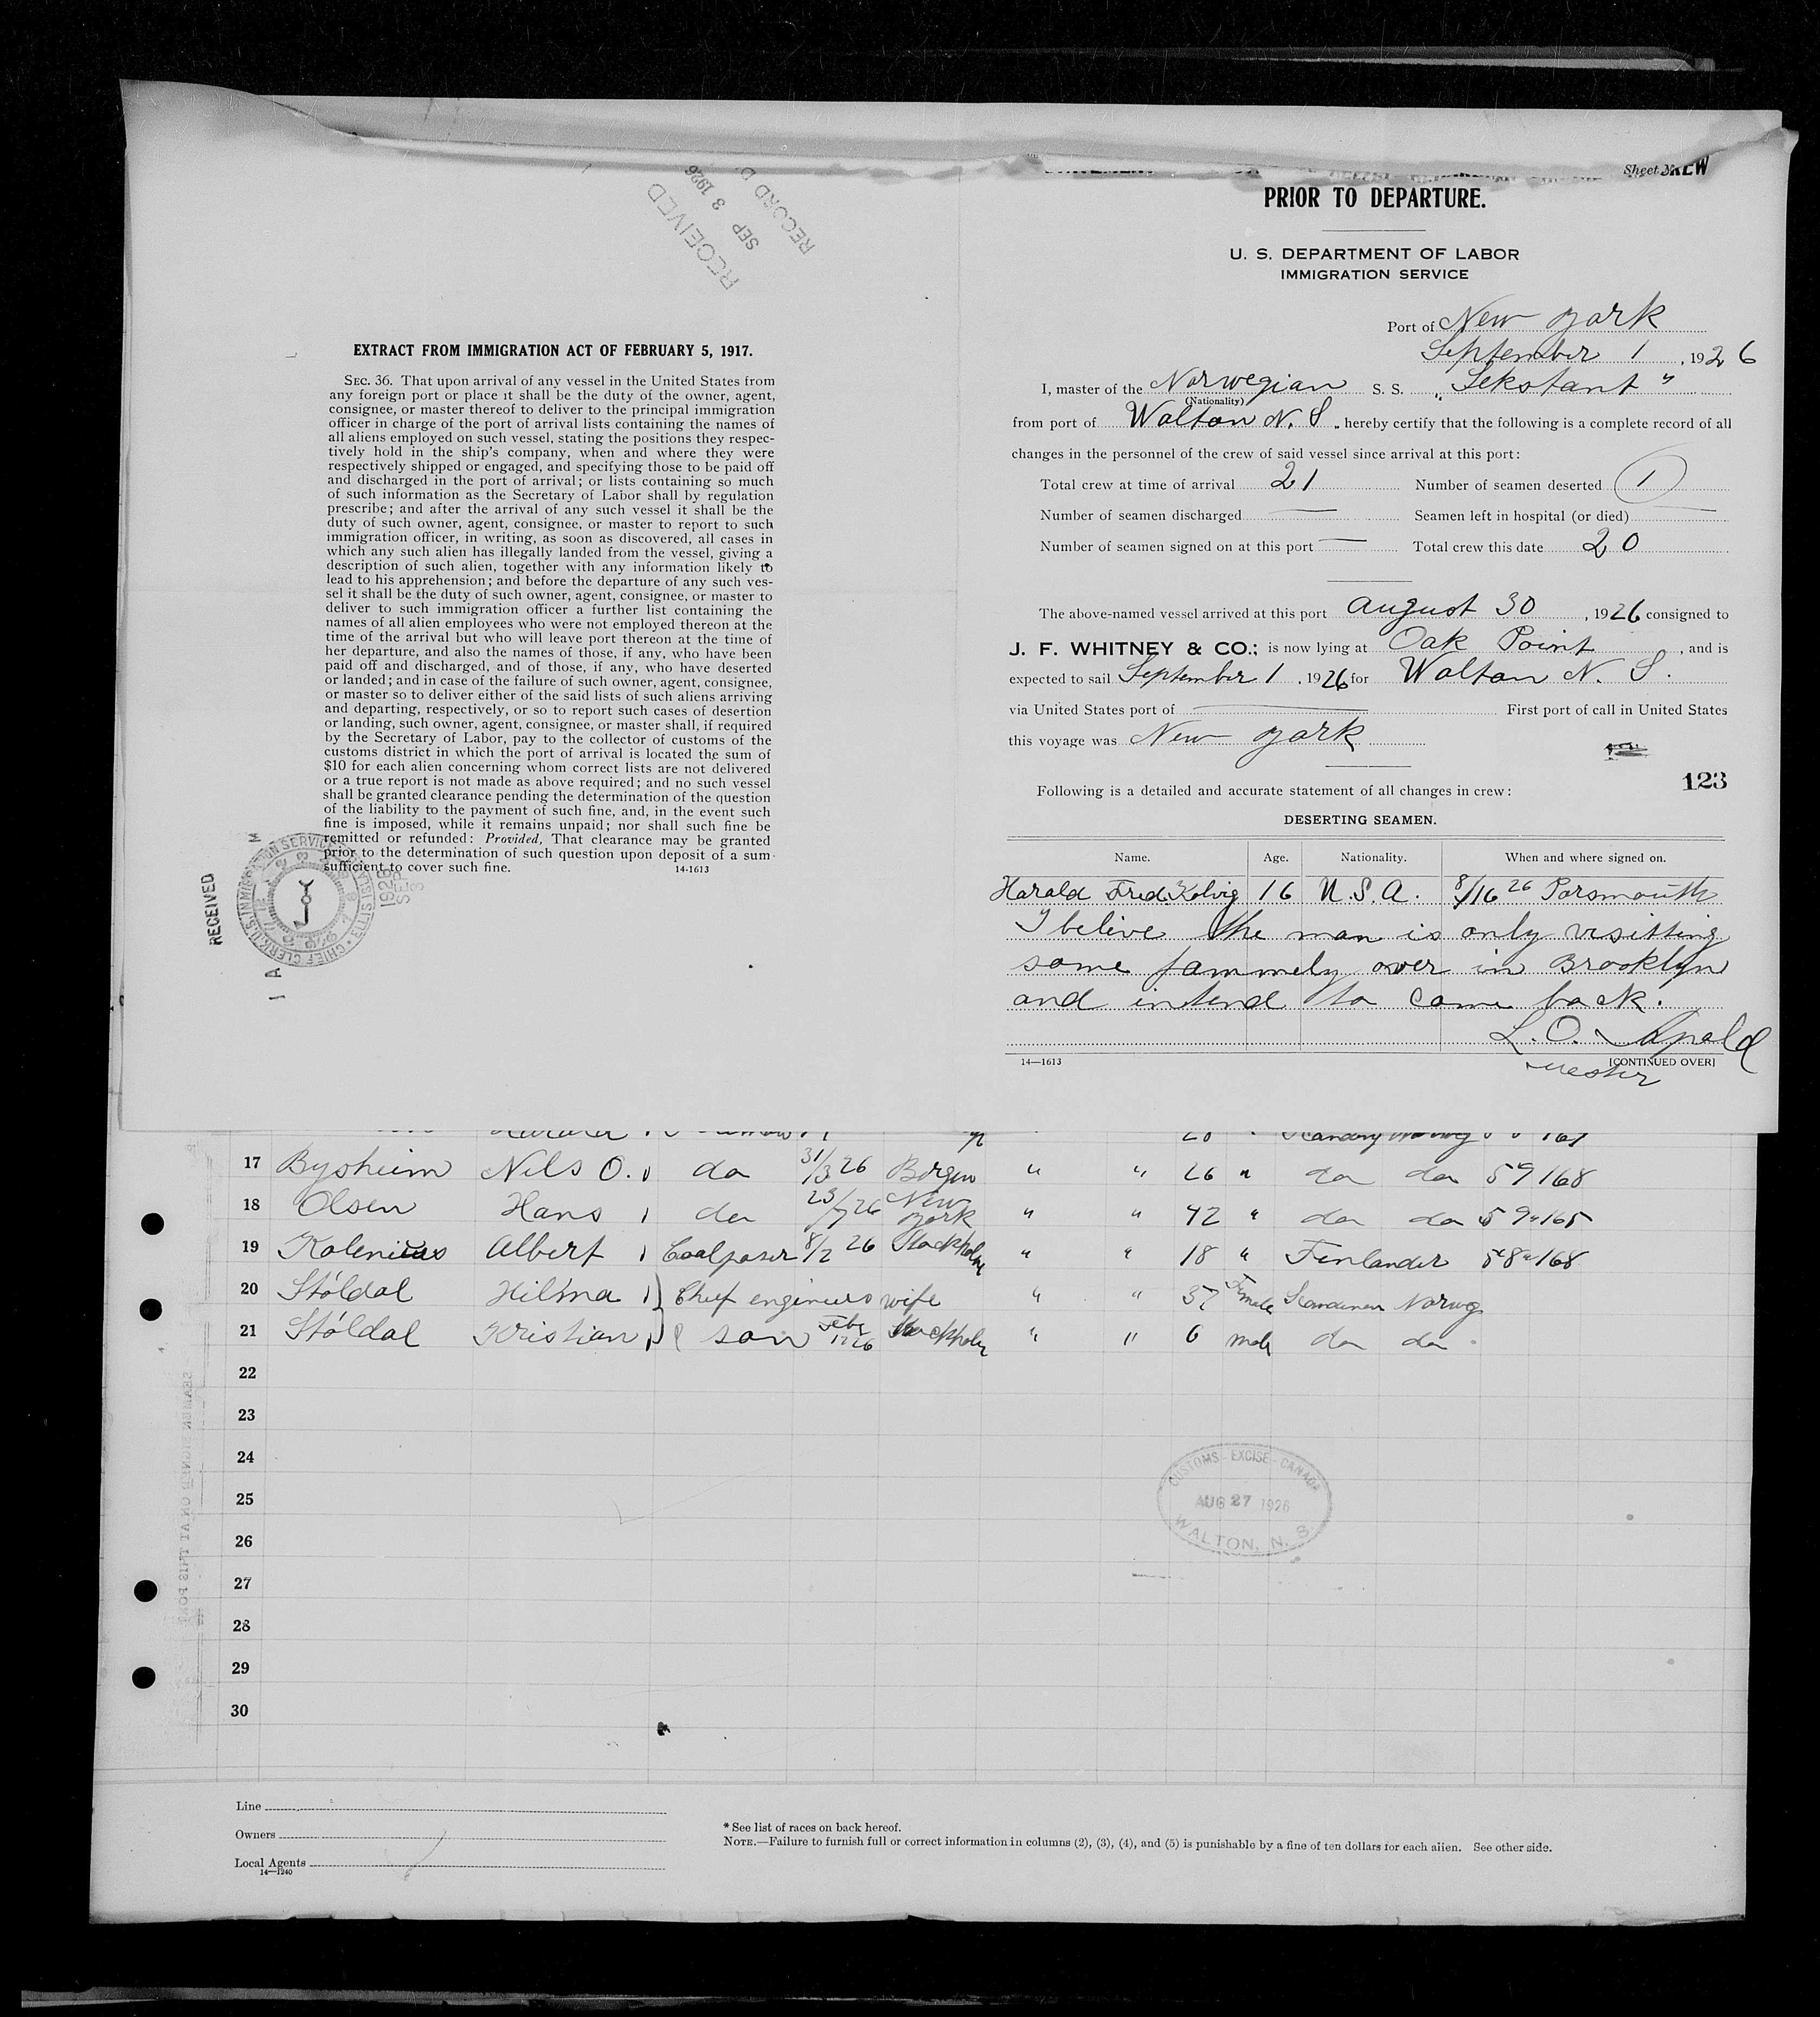 RECEIVED
SEP 3 1926
RECORD D
EXTRACT FROM IMMIGRATION ACT OF FEBRUARY 5, 1917.
SEC. 36. That upon arrival of any vessel in the United States from
any foreign port or place it shall be the duty of the owner, agent,
consignee, or master thereof to deliver to the principal immigration
officer in charge of the port of arrival lists containing the names of
all aliens employed on such vessel, stating the positions they respec-
tively hold in the ship's company, when and where they were
respectively shipped or engaged, and specifying those to be paid off
and discharged in the port of arrival; or lists containing so much
of such information as the Secretary of Labor shall by regulation
prescribe; and after the arrival of any such vessel it shall be the
duty of such owner, agent, consignee, or master to report to such
immigration officer, in writing, as soon as discovered, all cases in
which any such alien has illegally landed from the vessel, giving a
description of such alien, together with any information likely to
lead to his apprehension; and before the departure of any such ves-
sel it shall be the duty of such owner, agent, consignee, or master to
deliver to such immigration officer a further list containing the
names of all alien employees who were not employed thereon at the
time of the arrival but who will leave port thereon at the time of
her departure, and also the names of those, if any, who have been
paid off and discharged, and of those, if any, who have deserted
or landed; and in case of the failure of such owner, agent, consignee,
or master so to deliver either of the said lists of such aliens arriving
and departing, respectively, or so to report such cases of desertion
or landing, such owner, agent, consignee, or master shall, if required
by the Secretary of Labor, pay to the collector of customs of the
customs district in which the port of arrival is located the sum of
$10 for each alien concerning whom correct lists are not delivered
or a true report is not made as above required; and no such vessel
shall be granted clearance pending the determination of the question
of the liability to the payment of such fine, and, in the event such
fine is imposed, while it remains unpaid; nor shall such fine be
remitted or refunded: Provided, That clearance may be granted
prior to the determination of such question upon deposit of a sum
sufficient to cover such fine.
14-1613
RECEIVED
1926 SEP 3
Sheet
PRIOR TO DEPARTURE.
U. S. DEPARTMENT OF LABOR
IMMIGRATION SERVICE
Port of New York
September 1, 1926
I, master of the Norwegian S. S. "Sekstant"
(Nationality)
from port of Walton N. S., hereby certify that the following is a complete record of all
changes in the personnel of the crew of said vessel since arrival at this port:
Total crew at time of arrival 21 Number of seamen deserted 1
Number of seamen discharged — Seamen left in hospital (or died) —
Number of seamen signed on at this port — Total crew this date 20
The above-named vessel arrived at this port August 30, 1926 consigned to
J. F. WHITNEY & CO.; is now lying at Oak Point, and is
expected to sail September 1, 1926 for Walton N. S.
via United States port of — First port of call in United States
this voyage was New York
123
Following is a detailed and accurate statement of all changes in crew:
DESERTING SEAMEN.
Name. Age. Nationality. When and where signed on.
Harald Fred. Kolvig 16 U.S.A. 8/16 26 Porsmouth
I belive the man is only visitting
some fammely over in Brooklyn
and intend to come back.
L. O.
Mester
14—1613 [CONTINUED OVER]
17 Bysheim Nils O. do 31/3 26 Bergen " " 26 " do do 5 9 168
18 Olsen Hans do 23/7 26 New York " " 42 " do do 5 9 165
19 Kolenius Albert Coalpaser 8/2 26 Stockholm " " 18 " Finlander 5 8 168
20 Stóldal Hilma Chief engineers wife " " 37 Female Scandinav Norweg
21 Stóldal Kristian son Febr 1926 Stockholm " " 6 male do do
22
23
24
25
26
27
28
29
30
CUSTOMS - EXCISE - CANADA
AUG 27 1926
WALTON, N. S.
Line
Owners
Local Agents
14—1240
* See list of races on back hereof.
NOTE.—Failure to furnish full or correct information in columns (2), (3), (4), and (5) is punishable by a fine of ten dollars for each alien. See other side.